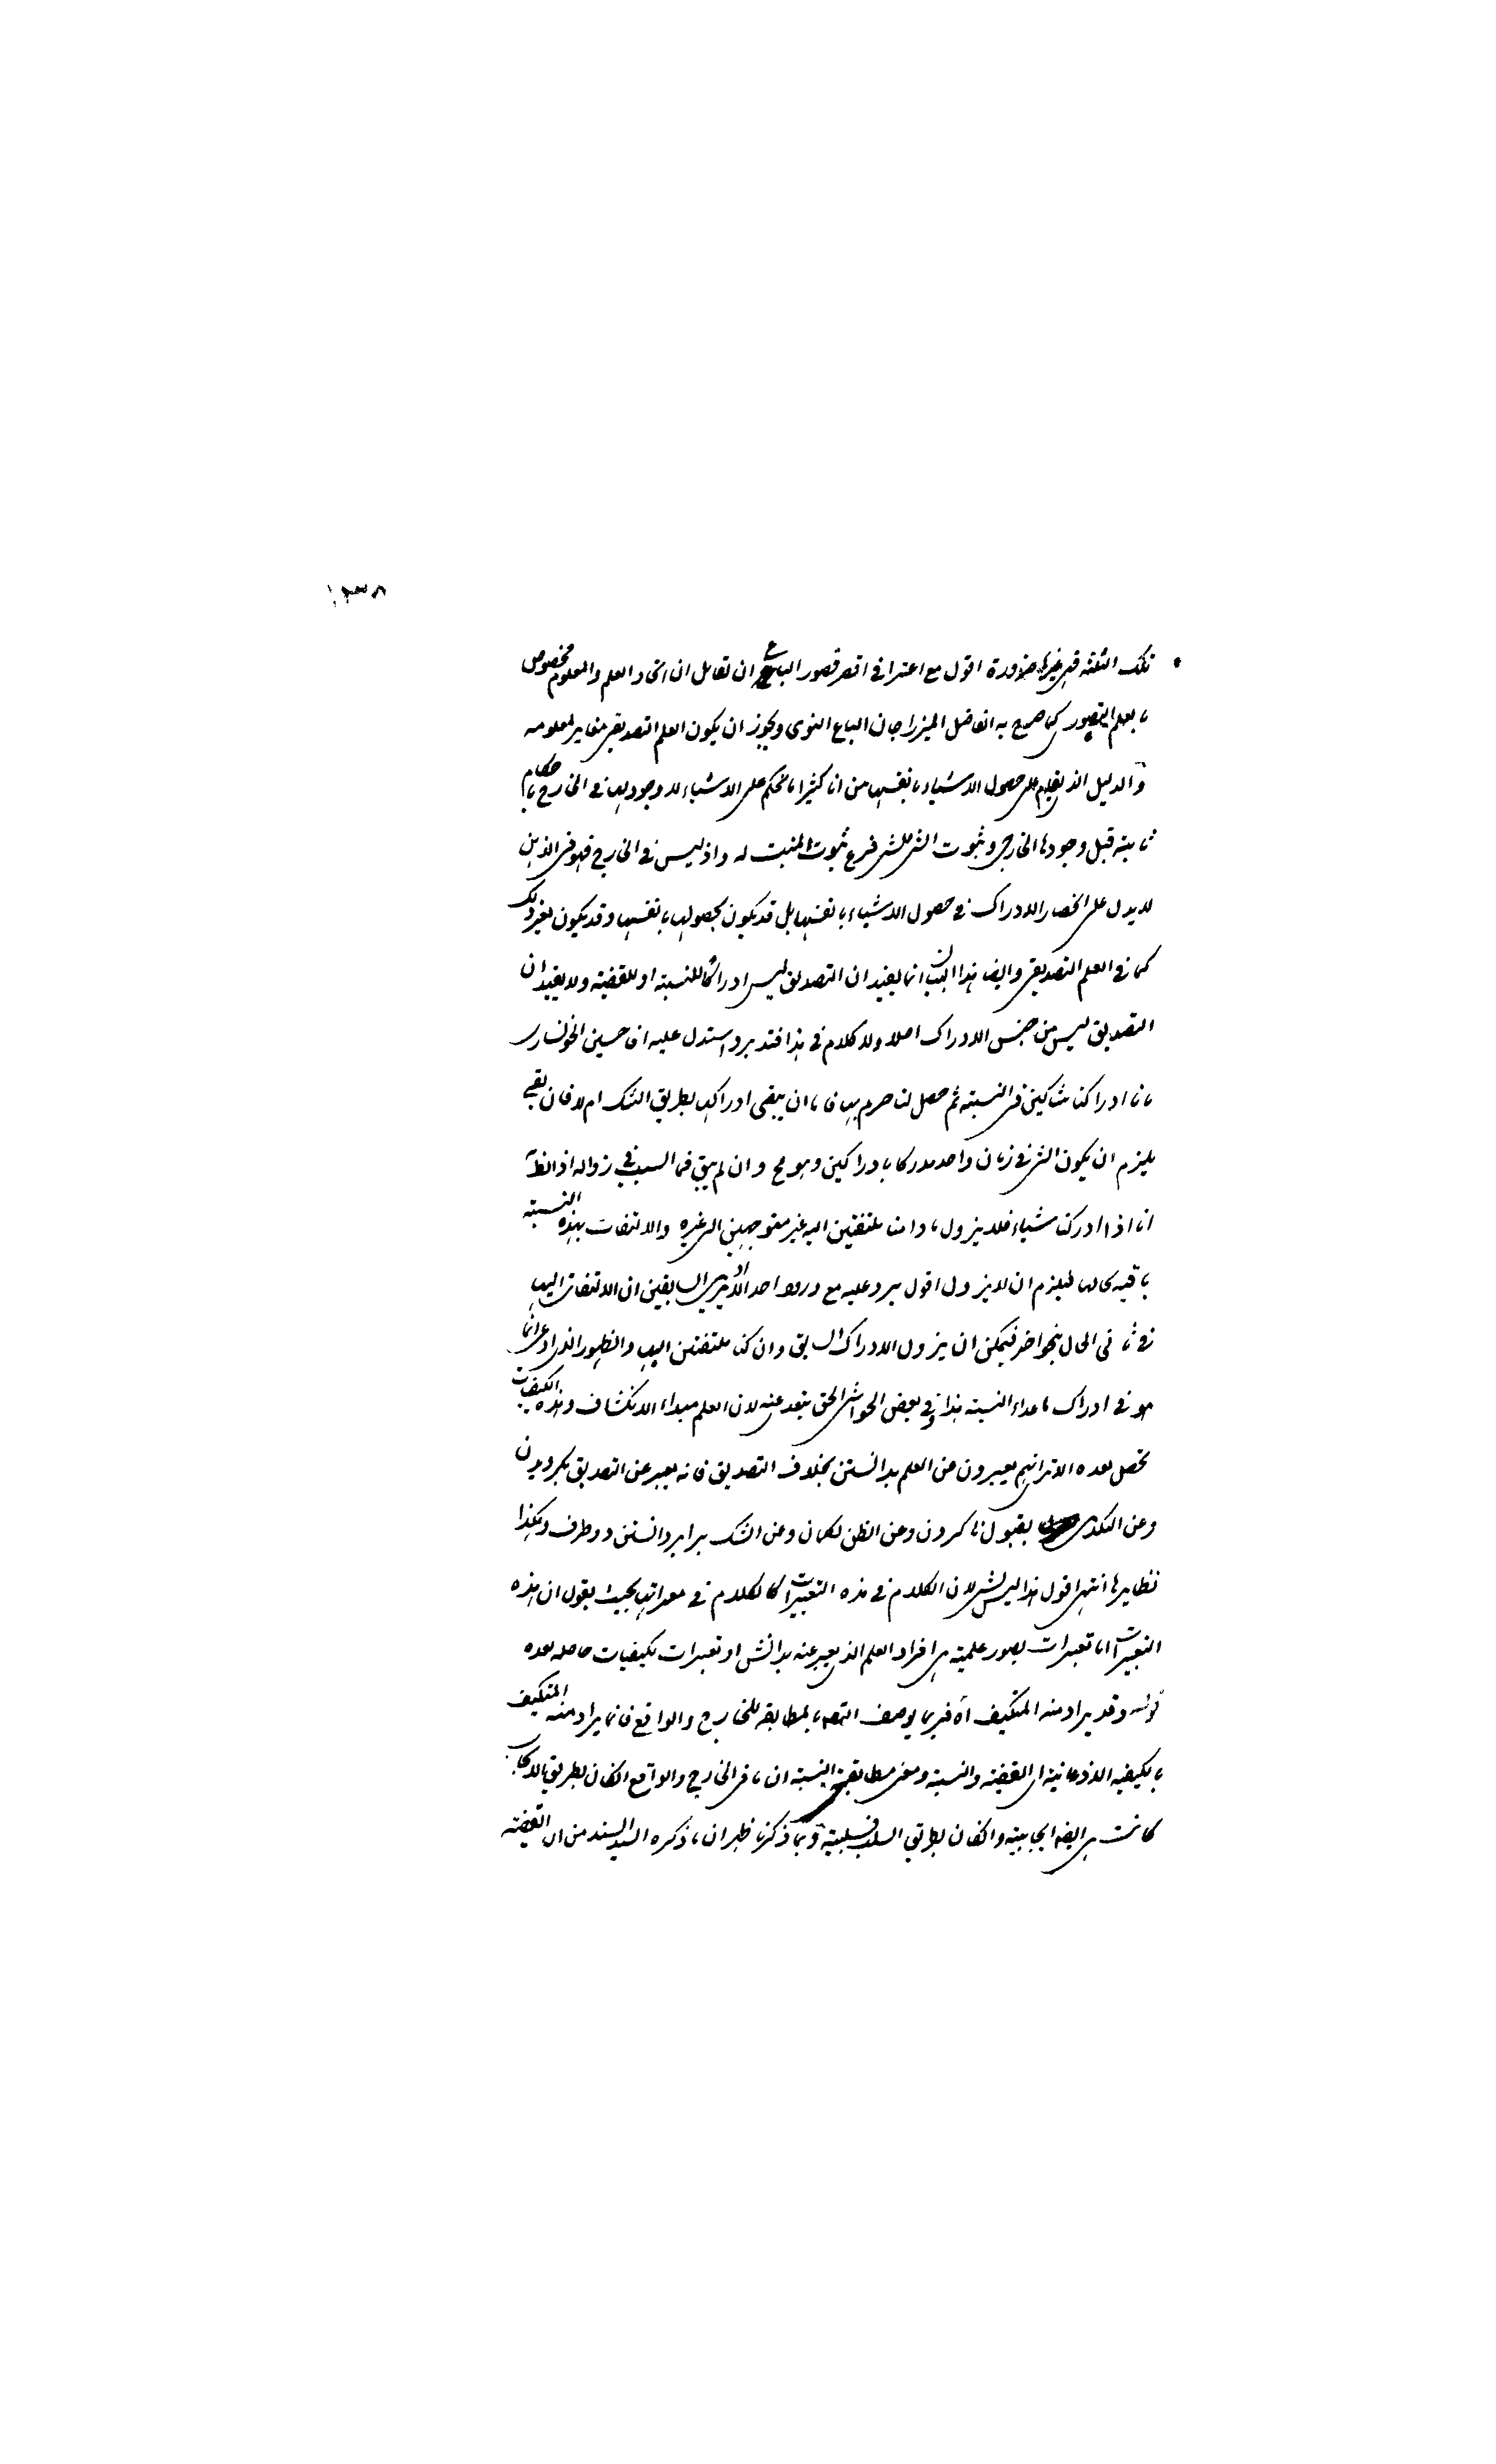 ١٣٨
تلك الثلثة فهي غيرها ضرورة اقول مع اعترافي اقصر قصور الباع ان لقائل ان اتحاد العلم والمعلوم مخصوص
بالعلم التصوري كما صرح به الفاضل الميرزاجان الباغ النوى ويجوز ان يكون العلم التصديقي مغاير لمعلومه
والدليل الذي يقام على حصول الاشياء بانفسها من انا كثيرا ما نحكم على الاشياء لا وجود لها في الخارج باحكام
ثابتة قبل وجودها الخارجي وثبوت الشئ للشئ فرع ثبوت المثبت له واذ ليس في الخارج فهو في الذهن
لا يدل على انحصار الادراك في حصول الاشياء بانفسها بل قد يكون بحصولها بانفسها وقد يكون بغير ذلك
كما في العلم التصديقي وايضا هذا البيان انما يفيد ان التصديق ليس ادراكا للنسبة او للقضية ولا يفيد ان
التصديق ليس من جنس الادراك اصلا ولا كلام في هذا فتدبر واستدل عليه اقا حسين الخوانساري
بانا ادا كنا شاكين في النسبة ثم حصل لنا جزم بها فاما ان يبقى ادراكها بطريق الشك ام لا فان بقي
يلزم ان يكون الشئ في زمان واحد مدركا بادراكين وهو مح وان لم يبق فما السبب في زواله اذ الظ
انا اذا ادركنا شياء فلا يزول ما دمنا ملتفتين اليه غير متوجهين الى غيره والالتفات بهذه النسبة
باقية بحالها فيلزم ان لا يزول اقول يرد عليه مع ورود احد الايرادين السابقين ان الالتفات اليها
في ثاني الحال بنحو اخر فيمكن ان يزول الادراك السابق وان كنا ملتفتين اليها والظهور الذي ادعى انما
هو في ادراك ما عداء النسبة هذا وفي بعض الحواشي الحق بتعدد عنه لان العلم مبداء الانكشاف وهذه الكيفيات
تحصل بعده الا ترى انهم يعبرون عن العلم بدانستن بخلاف التصديق فانه يعبر عن التصديق بكرويدن
وعن التكذيب بقبول ناكردن وعن الظن بكمان وعن الشك برابر دانستن دو طرف وهكذا
نظايرها انتهى اقول هذا ليس بشئ لان الكلام في هذه التعبيرات كالكلام في معبراتها بحيث يقول ان هذه
التعبيرات اما تعبيرات بصور علمية هي افراد العلم الذي يعبر عنه بدانش او تعبيرات بكيفيات حاصله بعده
قوله وقد يراد منه المتكيف اه فربما يوصف التصه بالمطابقه للخارج والواقع فانما يراد منه المتكيف
بالكيفيه الاذعانية اي القضية والنسبة ومعنى مطابقة النسبة ان ما في الخارج والواقع الكان بطريق الايجاب
كانت هي ايضا ايجابية والكان بطريق السلب فسلبية وبما ذكرنا ظهر ان ما ذكره السيد السند من ان القضية